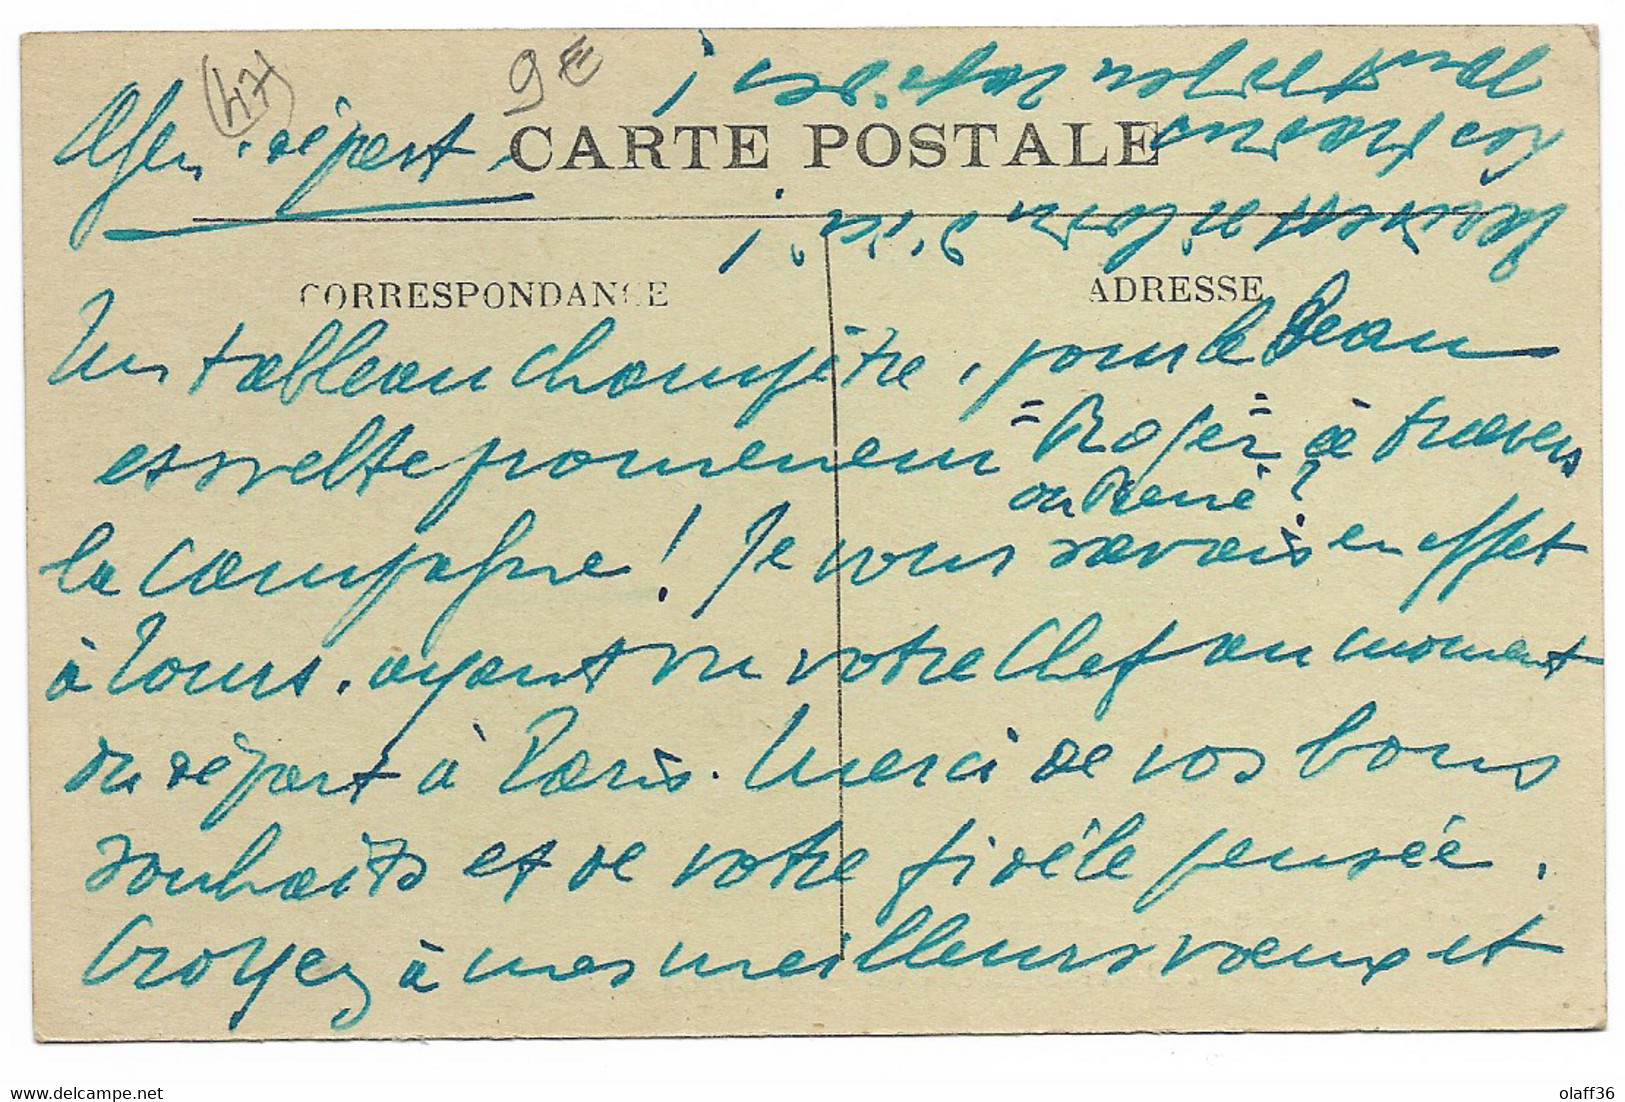 (47)
9€
Agen. départ
CARTE POSTALE
CORRESPONDANCE
ADRESSE
Un tableau champêtre, pour le beau
et svelte promeneur = Roger = à travers
ou René ?
la campagne ! Je vous savais en effet
à Tours. ayant vu votre Chef au moment
du départ à Paris. Merci de vos bons
souhaits et de votre fidèle pensée.
Croyez à mes meilleurs vœux et
olaff36